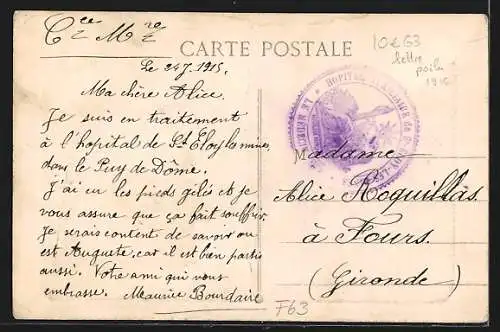 Cce Mre
CARTE POSTALE
10€ G3
lettre
poilu
1915
Le 24 J. 1915,
Ma chère Alice.
Je suis en traitement
à l'hopital de St Eloy lamines
dans le Puy de Dôme.
J'ai eu les pieds gelés et je
vous assure que ça fait souffrir
Je serais content de savoir ou
est Auguste, car il est bien partie
aussi. Votre ami qui vous
embrasse. Maurice Bourdaire
HOPITAL
Madame
Alice Roquillas
à Fours.
(Gironde)
F63